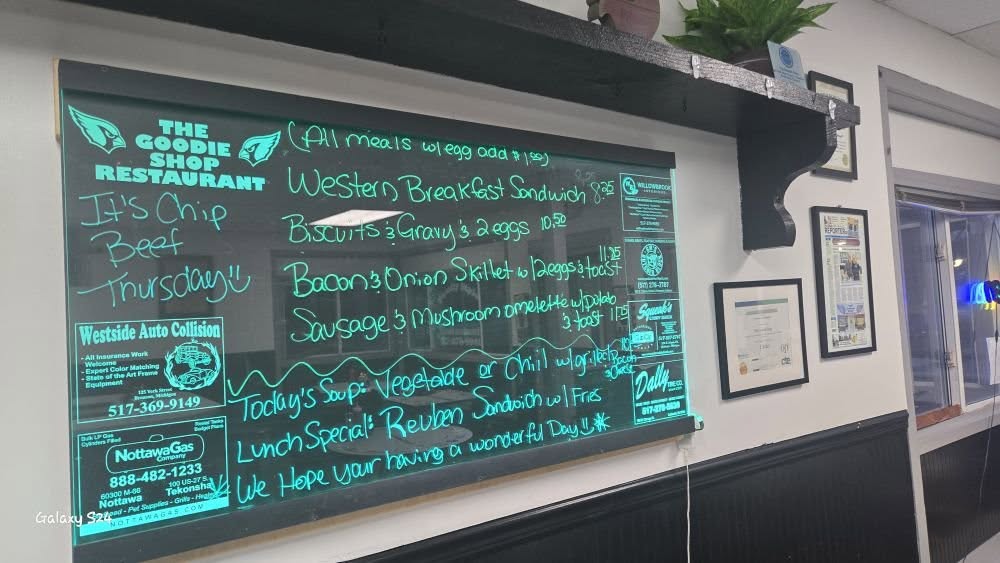 THE
GOODIE
SHOP
RESTAURANT
It's Chip
Beef
Thursday
(All meals w/egg add $1.00)
Western Breakfast Sandwich 8.25
Biscuits & Gravy & 2 eggs 10.50
Bacon & Onion Skillet w/2eggs & toast 11.25
Sausage & Mushroom omelette w/Potato
& toast
Today's Soup: Vegetable or Chili w/grilled
Bacon
& Cheese
Lunch Special: Reuben Sandwich w/ Fries
We Hope your having a wonderful Day!!
Westside Auto Collision
· All Insurance Work
Welcome
· Expert Color Matching
· State of the Art Frame
Equipment
125 York Street
Bronson, Michigan
517-369-9149
Bulk LP Gas
Cylinders Filled
Rental Tanks
Budget Plans
NottawaGas
Company
888-482-1233
60300 M-66
Nottawa
100 US-27 S.
Tekonsha
Feed - Pet Supplies - Grills - Heat
NOTTAWAGAS.COM
WILLOWBROOK
(517) 278-7787
Squeak's
Dally
TIRE CO.
REPORTER
Galaxy S24